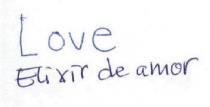 Love
Elixir de amor